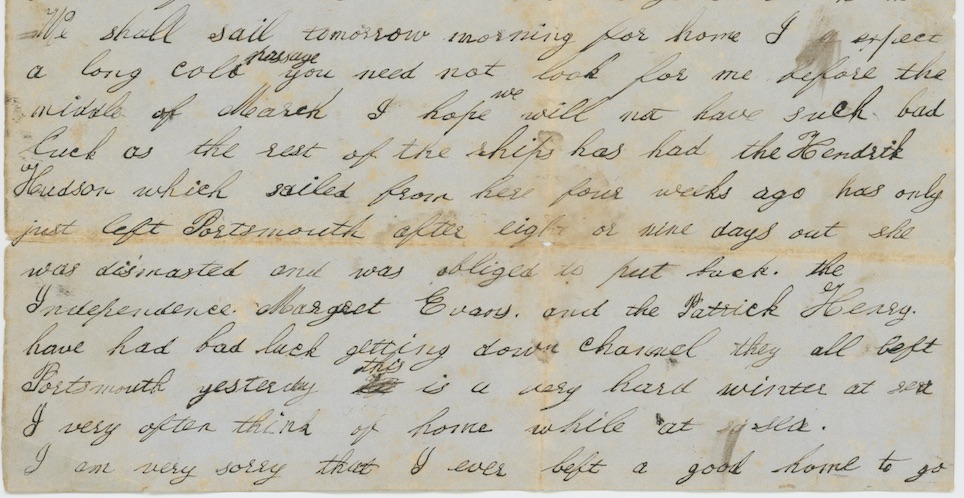 We shall sail tomorrow morning for home I expect
a long cold passage you need not look for me before the
middle of March I hope we will not have such bad
luck as the rest of the ships has had the Hendrik
Hudson which sailed from here four weeks ago has only
just left Portsmouth after eight or nine days out she
was dismasted and was obliged to put back. the
Independence. Margret Evans. and the Patrick Henry.
have had bad luck getting down channel they all left
Portsmouth yesterday this is a very hard winter at sea
I very often think of home while at sea.
I am very sorry that I ever left a good home to go